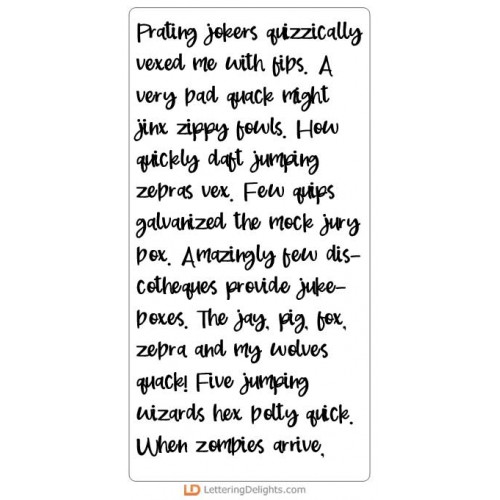 Prating jokers quizzically
vexed me with fibs. A
very bad quack might
jinx zippy fowls. How
quickly daft jumping
zebras vex. Few quips
galvanized the mock jury
box. Amazingly few dis-
cotheques provide juke-
boxes. The jay, pig, fox,
zebra and my wolves
quack! Five jumping
wizards hex bolty quick.
When zombies arrive,
LD LetteringDelights.com